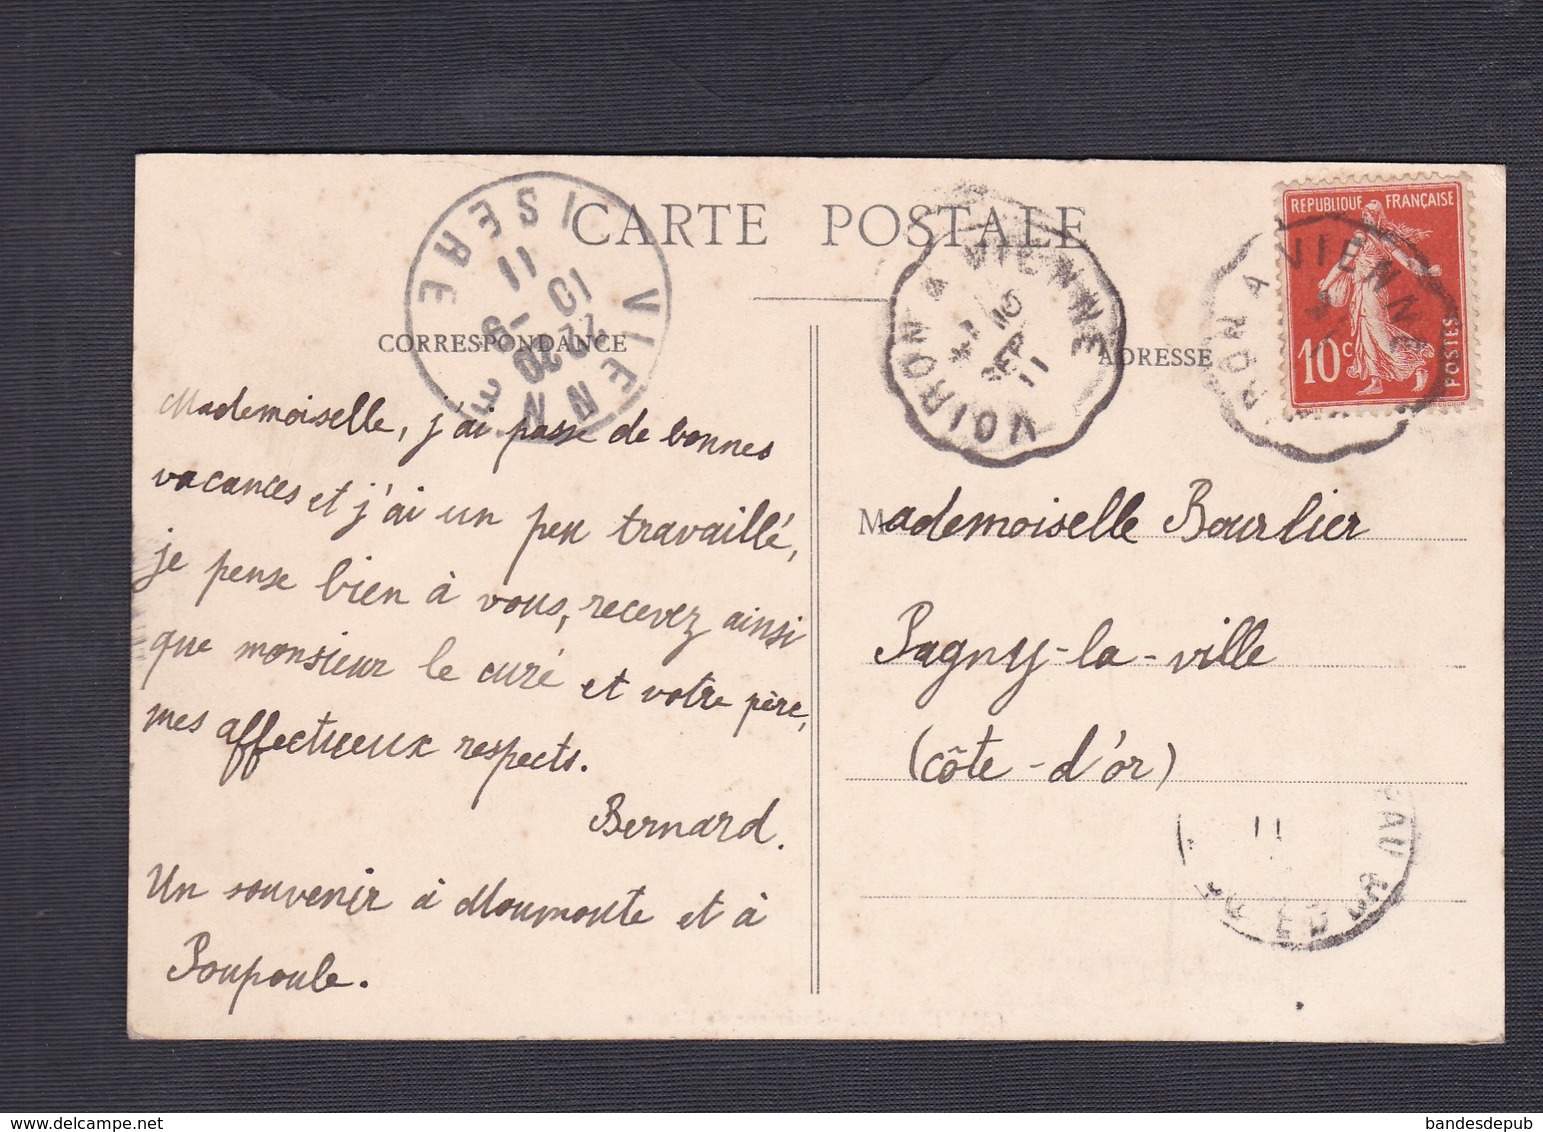 CARTE POSTALE
CORRESPONDANCE
ADRESSE
REPUBLIQUE FRANÇAISE
10c
POSTES
VIENNE
ISERE
2220
10 - 9
11
VOIRON A VIENNE
10
SEP
11
RON A VIENNE
Mademoiselle, j'ai passe de bonnes
vacances et j'ai un peu travaillé,
je pense bien à vous, recevez ainsi
que monsieur le curé et votre père,
mes affectueux respects.
Bernard.
Un souvenir à Moumoute et à
Poupoule.
Mademoiselle Bourlier
Pagny-la-ville
(côte-d'or)
11
bandesdepub